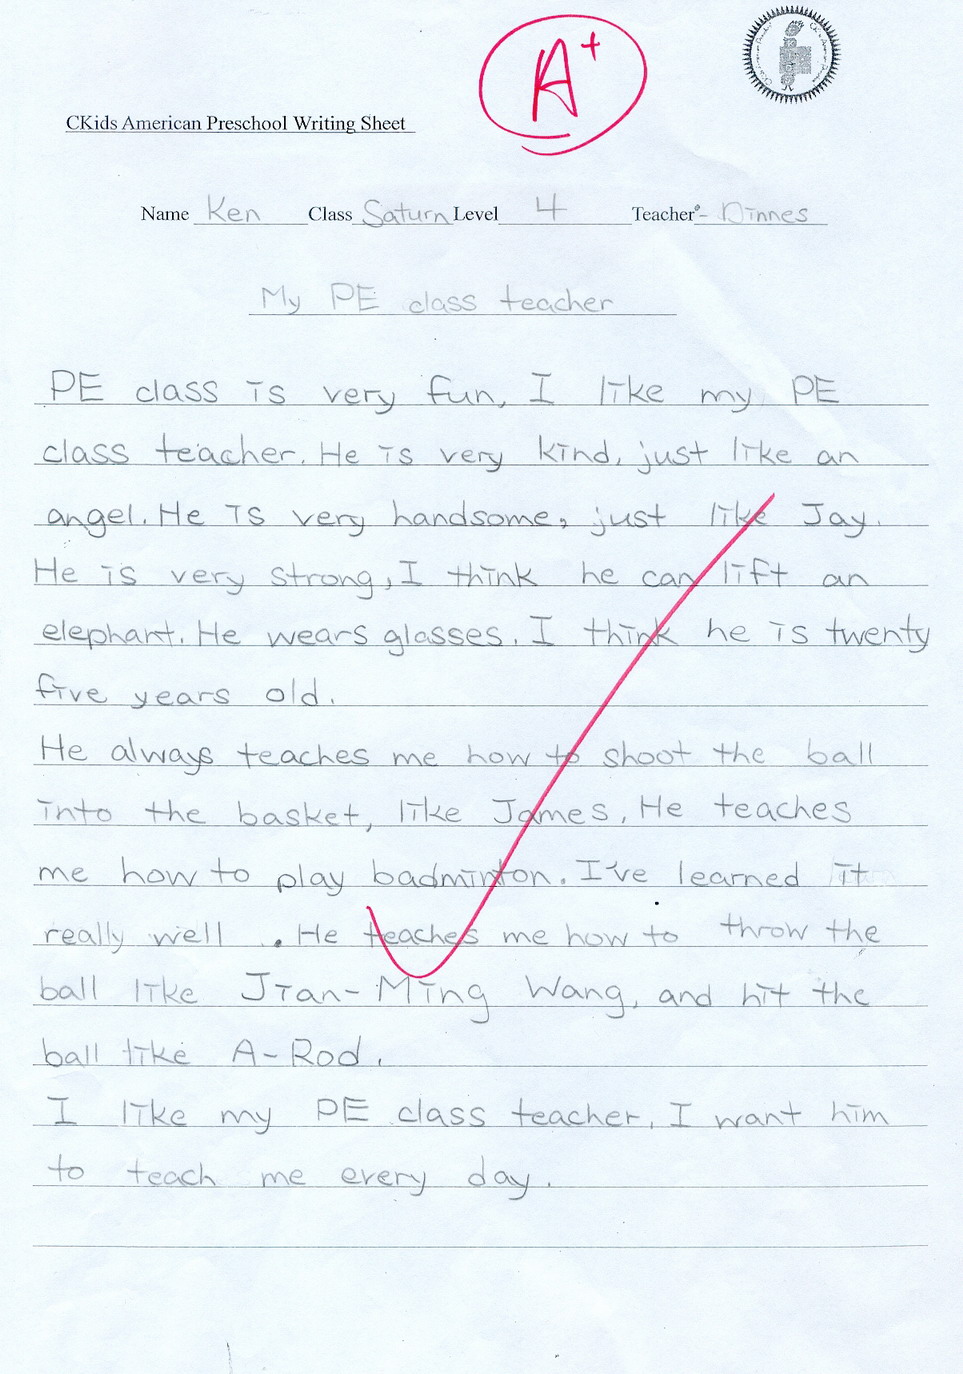 A+
CKids American Preschool Writing Sheet
Name Ken Class Saturn Level 4 Teacher - Dinnes
My PE class teacher
PE class is very fun, I like my PE
class teacher. He is very kind, just like an
angel. He is very handsome, just like Jay.
He is very strong, I think he can lift an
elephant. He wears glasses. I think he is twenty
five years old.
He always teaches me how to shoot the ball
into the basket, like James. He teaches
me how to play badminton. I've learned it
really well . He teaches me how to throw the
ball like Jian-Ming Wang, and hit the
ball like A-Rod.
I like my PE class teacher. I want him
to teach me every day.